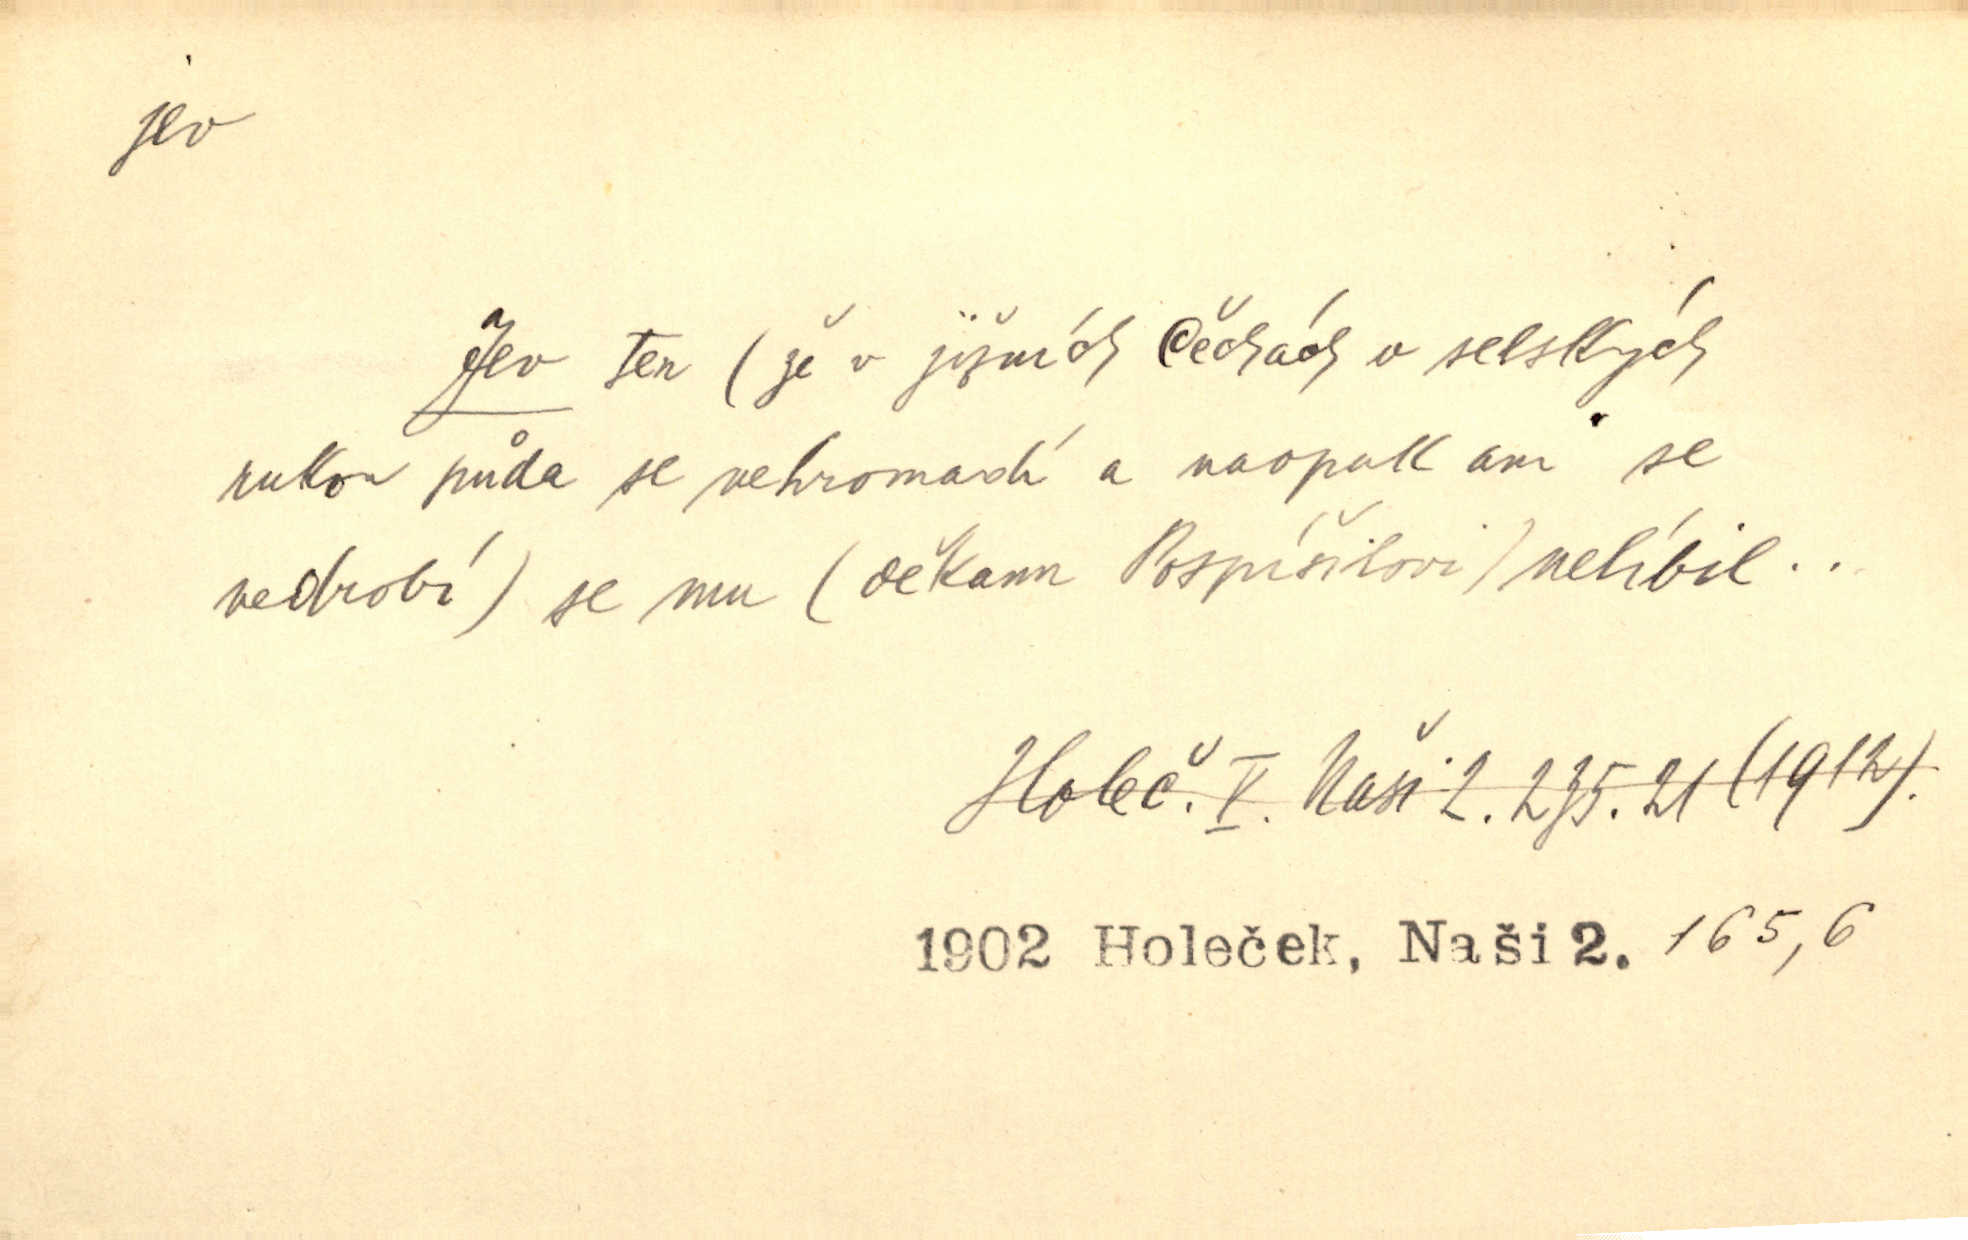 jev
Jev ten (že v jižních Čechách v selských
rukou půda se nehromadí a naopak ani se
nedrobí) se mu (děkanu Pospíšilovi) nelíbil ..
Holeč. V. Naši 2. 235. 21 (1912).
1902 Holeček, Naši 2. 165,6